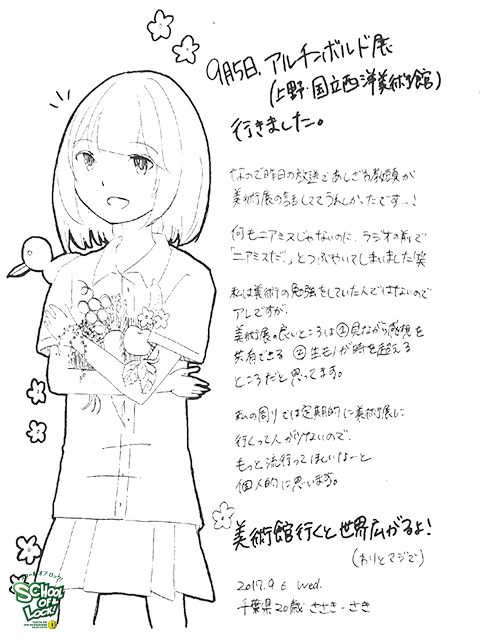 9月5日、アルチンボルド展
(上野・国立西洋美術館)
行きました。
なので昨日の放送であしざわ教頭が
美術展の話しててうれしかったですー!
何もニアミスじゃないのに、ラジオの前で
「ニアミスだ!」とつぶやいてしまいました笑
私は美術の勉強をしていた人ではないので
アレですが、
美術展の良いところは①見ながら感想を
共有できる ②生モノが時を超える
ところだと思ってます。
私の周りでは定期的に美術展に
行くって人が少ないので、
もっと流行ってほしいなーと
個人的に思います。
美術館行くと世界広がるよ!
(わりとマジで)
2017.9.6 wed.
千葉県20歳 ささき-さき
SCHOOL
OF
LOCK!